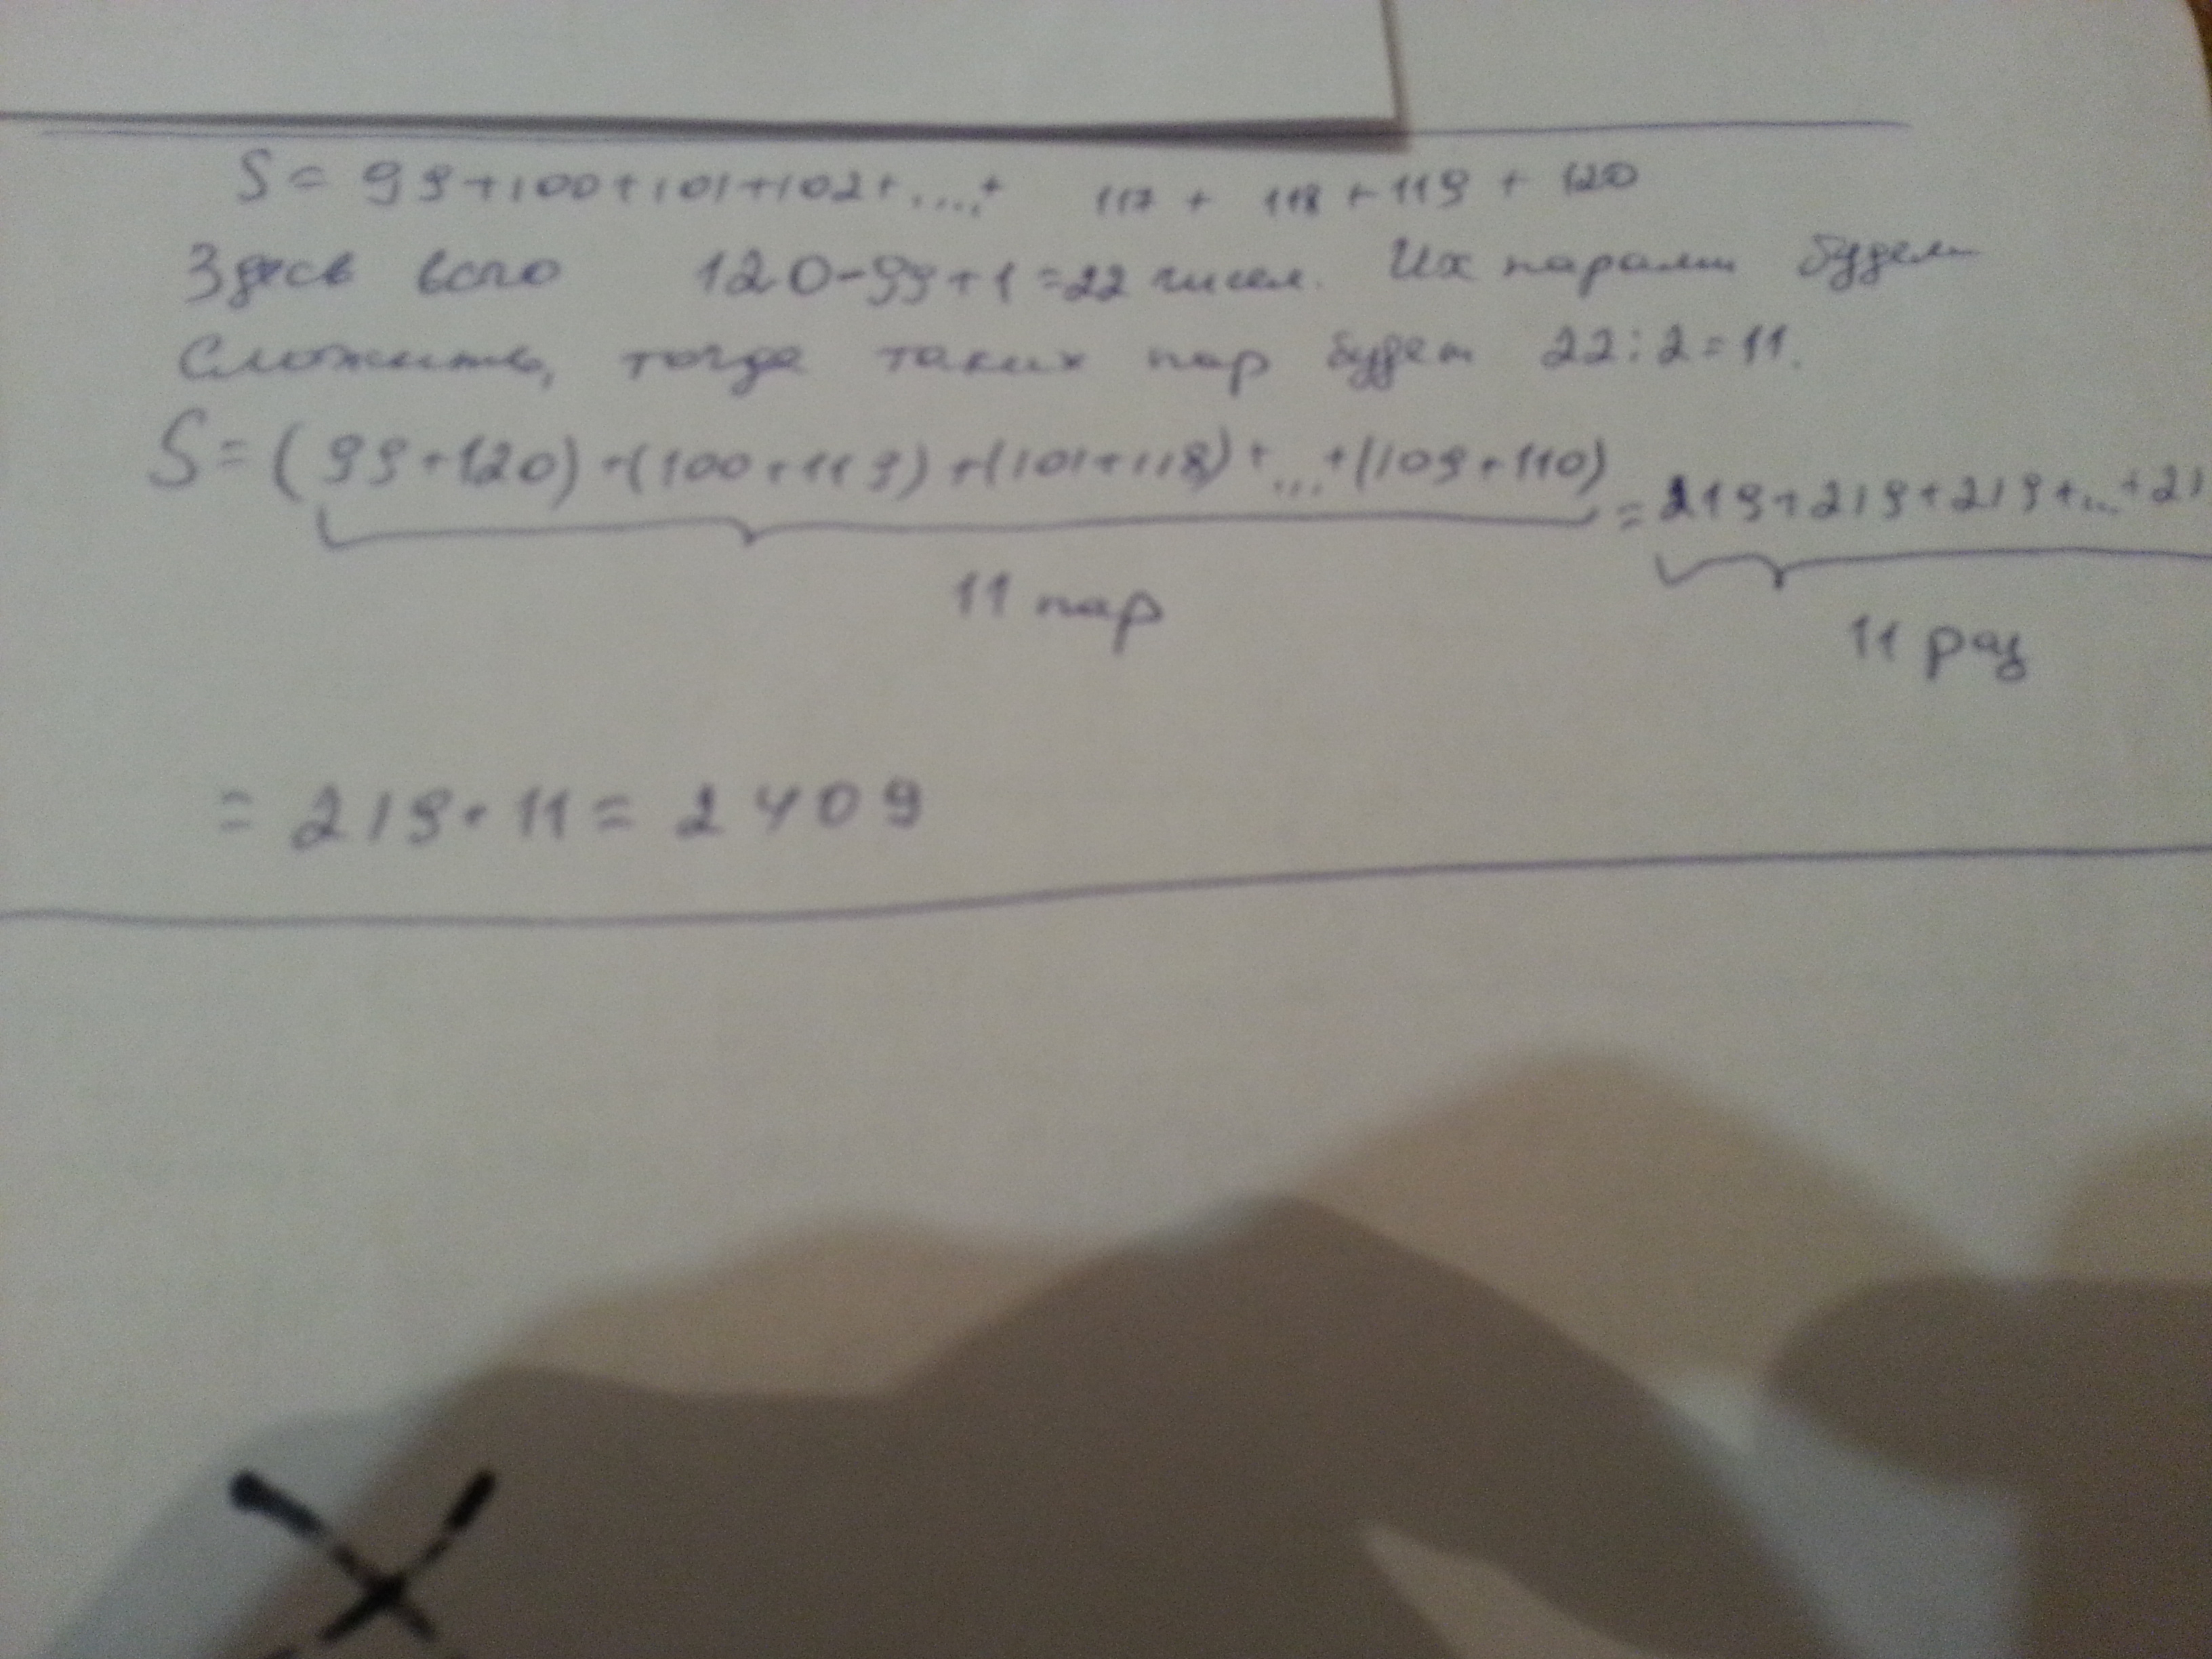 S = 99+100+101+102+....+ 117 + 118 + 119 + 120
Здесь всего 120-99+1=22 чисел. Их парами будем
сложить, тогда таких пар будет 22:2=11.
S=(99+120)+(100+119)+(101+118)+...+(109+110) = 219+219+219+...+21
11 пар
11 раз
= 219·11= 2409